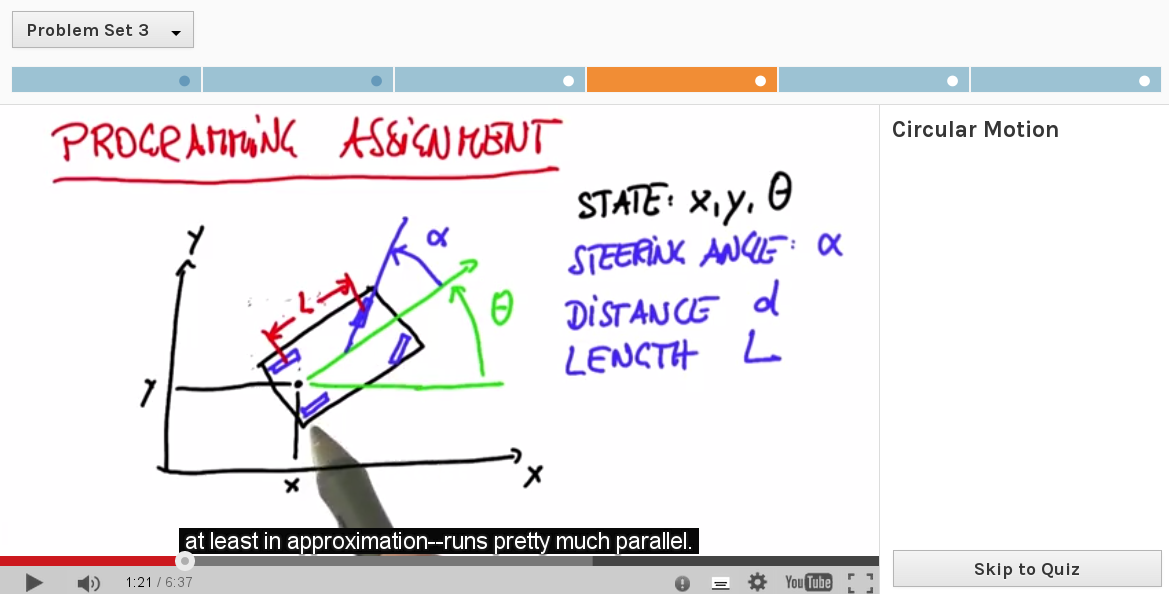 Problem Set 3
PROGRAMMING ASSIGNMENT
Circular Motion
STATE: x, y, θ
STEERING ANGLE: α
DISTANCE d
LENGTH L
y
α
L
θ
y
x
x
at least in approximation--runs pretty much parallel.
1:21 / 6:37
YouTube
Skip to Quiz